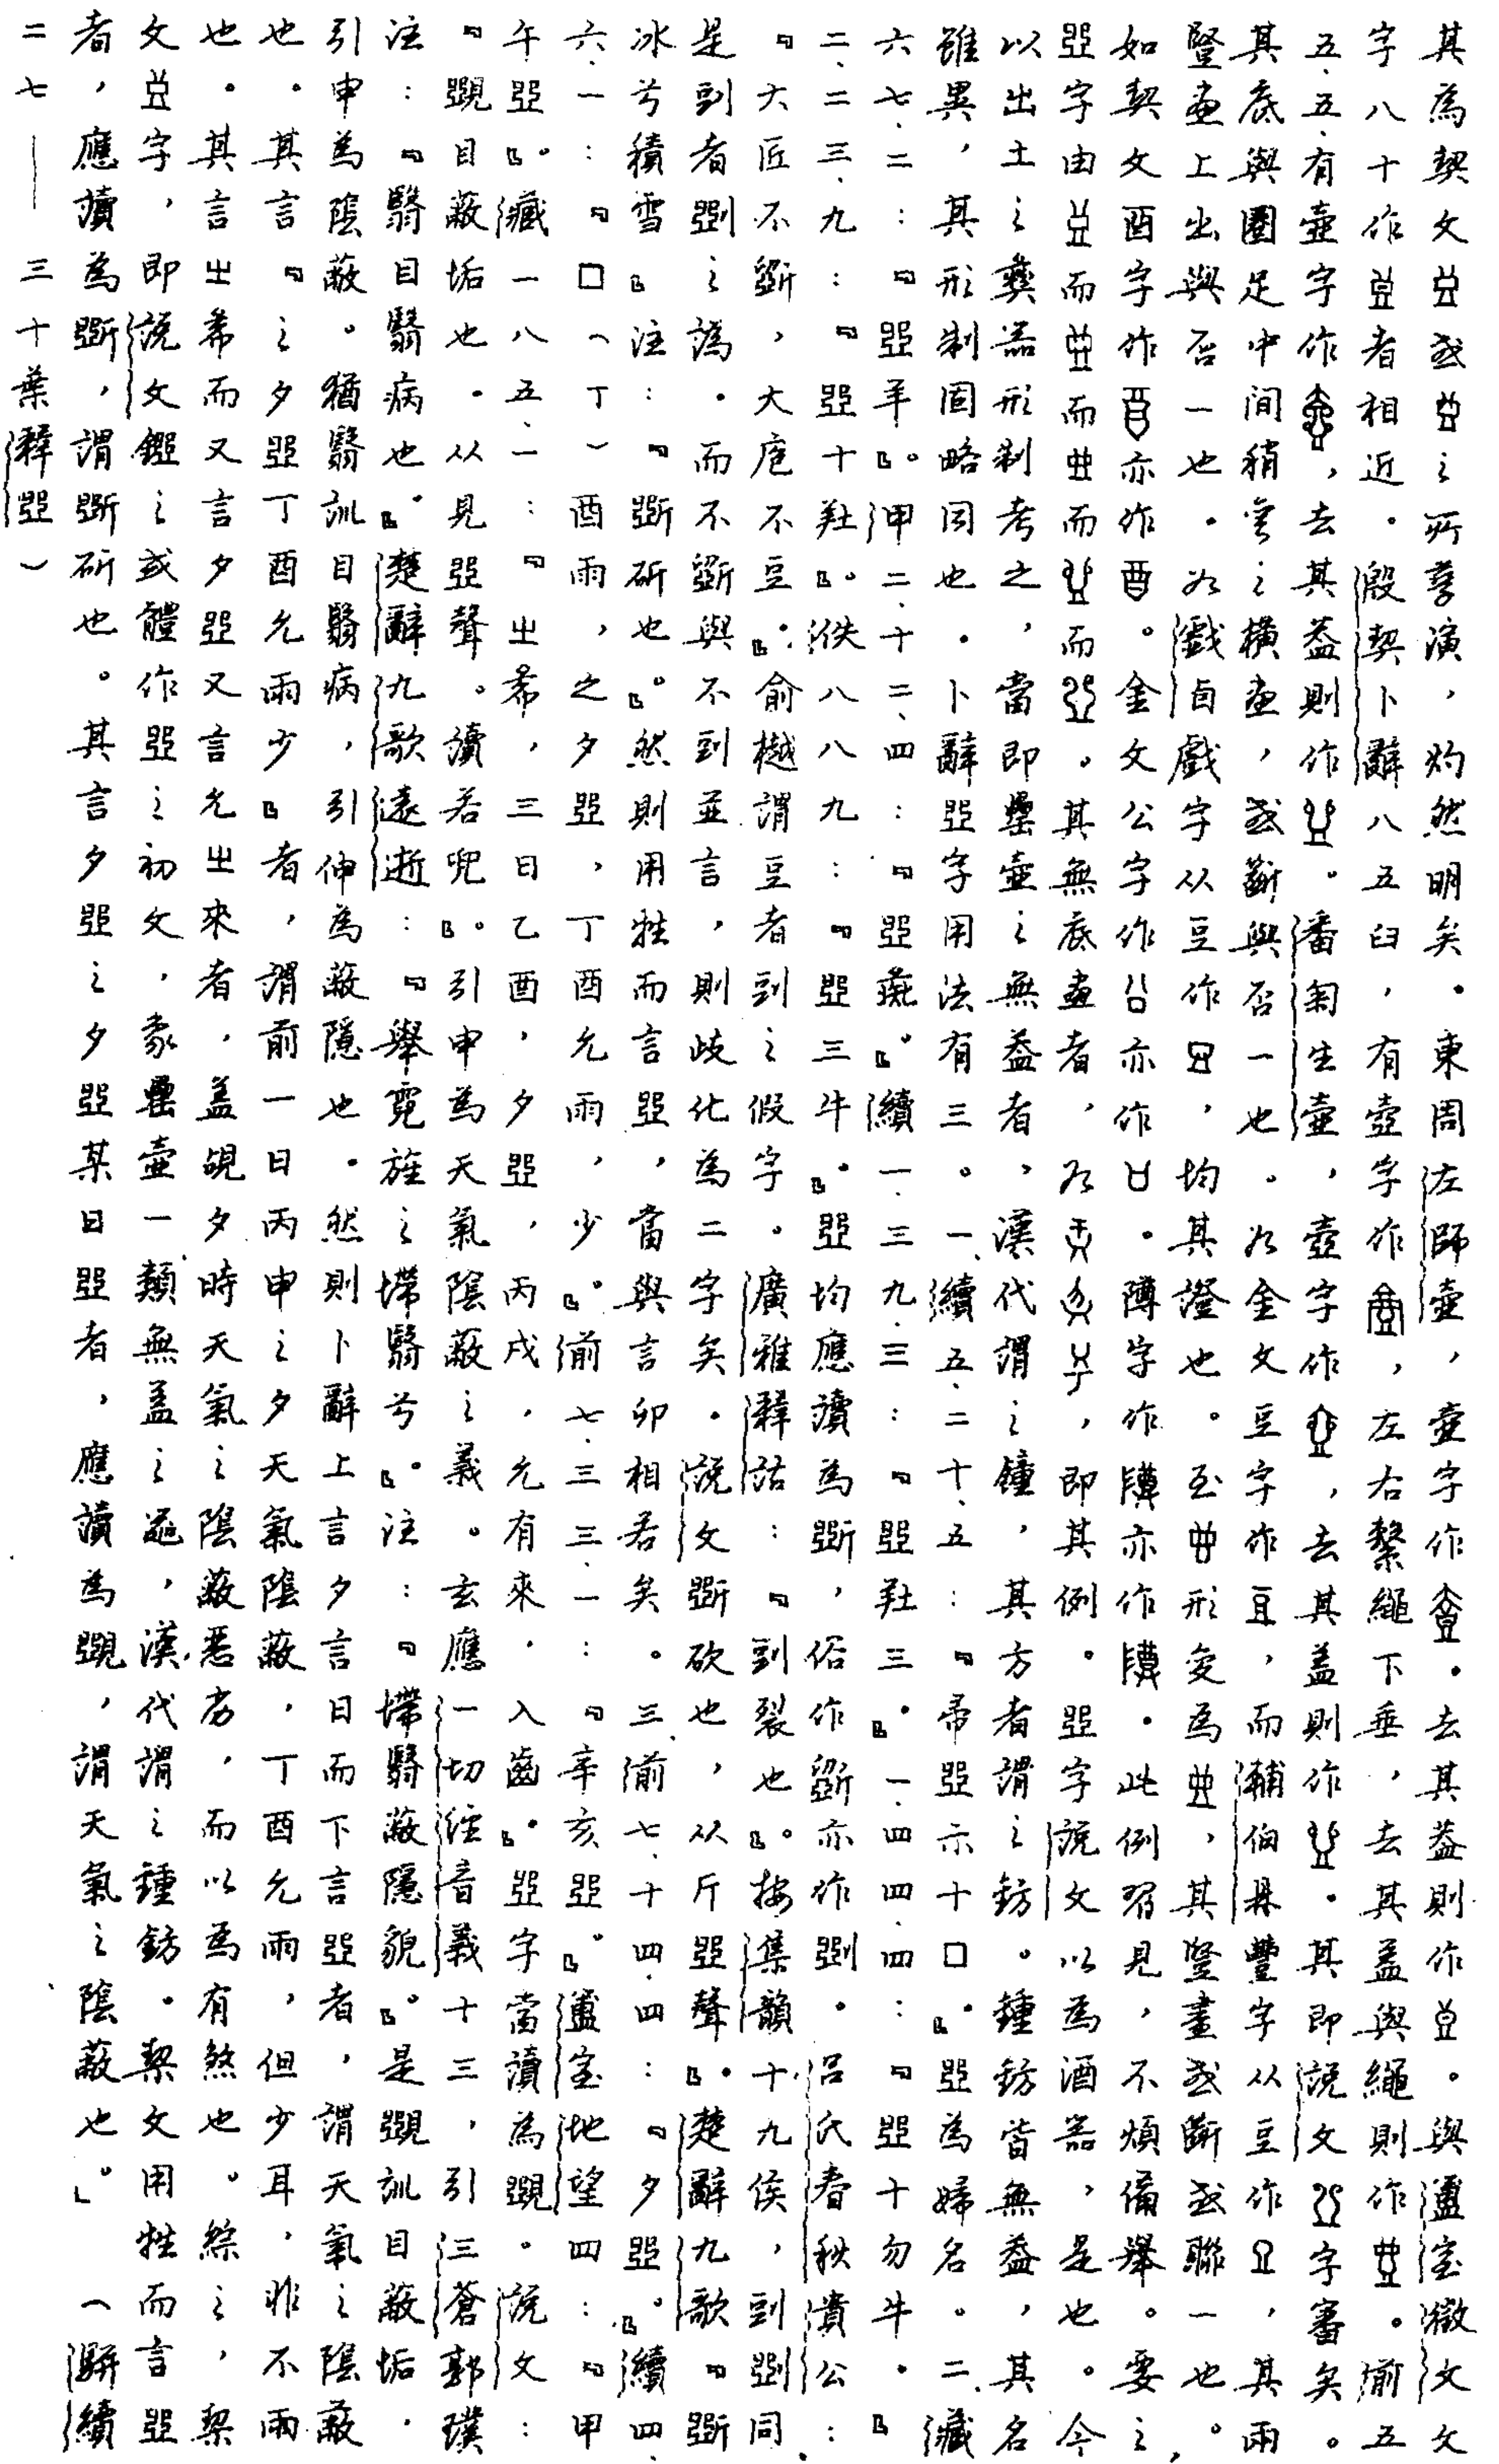 其為契文或之所孳演，灼然明矣．東周左師壺，壺字作．去其蓋則作．與盧室徵文文
字八十作者相近．殷契卜辭八五臼，有壺字作，左右繫繩下垂，去其蓋與繩則作．前五
五．五．有壺字作，去其蓋則作．潘匊生壺，壺字作，去其蓋則作．其即說文字審矣。
其底與圈足中間稍寬之橫畫，或斷與否一也．如金文豆字作豆，而輔伯鼎豐字从豆作，其兩
豎畫上出與否一也．如戲卣戲字从豆作，均其證也．至形变為，其豎畫或斷或聯一也。
如契文酉字作亦作酉。金文公字作亦作．䧹字作亦作．此例習見，不煩備舉。要之，
𠁁字由而而而而．其無底畫者，如，即其例．𠁁字說文以為酒器，是也．今
以出土之彝器形制考之，當即罍壺之無蓋者，漢代謂之鍾，其方者謂之鈁．鍾鈁皆無蓋，其名
雖異，其形制固略同也．卜辭𠁁字用法有三．一、續五．二十．五：『帚𠁁示十□』．𠁁為婦名．二、藏
六七．二：『𠁁羊』．甲二．十二．四：『𠁁』．續一．三九．三：『𠁁三』．一．四四．四：『𠁁十勿牛』
二．二三．九：『𠁁十』．佚八八九：『𠁁三牛』．𠁁均應讀為斲，俗作斵亦作．呂氏春秋貴公：
『大匠不斵，大庖不豆』．俞樾謂豆者剅之假字．廣雅釋詁：『剅裂也』．按集韻十九侯，剅同
是剅者之譌．而不斵與不剅並言，則歧化為二字矣．說文斲砍也，从斤𠁁聲』．楚辭九歌『斲
冰兮積雪』注：『斲斫也』．然則用牲而言𠁁，當與言卯相若矣．三、前七．十四．四：『夕𠁁』．續四．
六．一：『□（丁）酉雨，之夕𠁁，丁酉允雨，少』．前七．三三．一：『辛亥𠁁』．盧室地望四：『甲
午𠁁』．藏一八五．一：『㞢希，三日乙酉，夕𠁁，丙戌，允有來．入齒』．𠁁字當讀為．說文：
『目蔽垢也．从見𠁁聲．讀若兜』．引申為天氣陰蔽之義．玄應一切經音義十三，引三蒼郭璞
注：『翳目翳病也』．楚辭九歌遠逝：『舉霓旌之墆翳兮』．注：『墆翳蔽隱貌』．是訓目蔽垢．
引申為陰蔽．猶翳訓目翳病，引伸為蔽隱也．然則卜辭上言夕言日而下言𠁁者，謂天氣之陰蔽
也．其言『之夕𠁁丁酉允雨少』者，謂前一日丙申之夕天氣陰蔽，丁酉允雨，但少耳，非不雨
也．其言㞢希而又言夕𠁁又言允㞢來者，蓋覘夕時天氣之陰蔽惡劣，而以為有煞也．綜之，契
文字，即說文鎠之或體作𠁁之初文，象罍壺一類無蓋之器，漢代謂之鍾鈁．契文用牲而言𠁁
者，應讀為斲，謂斲斫也．其言夕𠁁之夕𠁁某日𠁁者，應讀為，謂天氣之陰蔽也」（駢續
二七——三十葉釋𠁁）